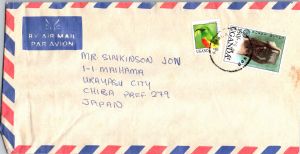 BY AIR MAIL
PAR AVION
UGANDA
UGANDA
MR. SINKINSON JON
1-1 MAIHAMA
URAYASU CITY
CHIBA PREF 279
JAPAN